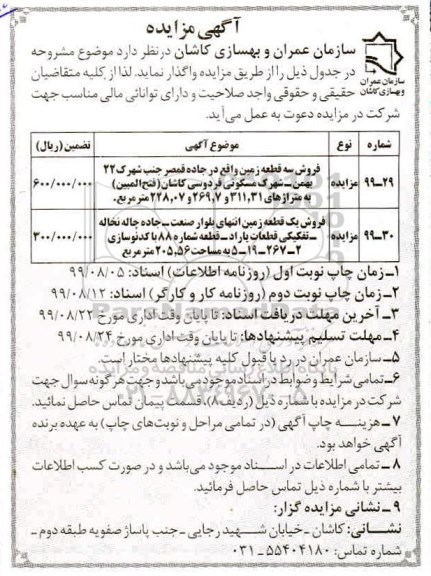 آگهی مزایده
سازمان عمران و بهسازی کاشان درنظر دارد موضوع مشروحه
در جدول ذیل را از طریق مزایده واگذار نماید. لذا از کلیه متقاضیان
حقیقی و حقوقی واجد صلاحیت و دارای توانائی مالی مناسب جهت
شرکت در مزایده دعوت به عمل می‌آید.
سازمان عمران
وبهسازی کاشان
شماره نوع موضوع آگهی تضمین (ریال)
فروش سه قطعه زمین واقع در جاده قمصر جنب شهرک ۲۲
۲۹-۹۹ مزایده بهمن ـ شهرک مسکونی فردوسی کاشان (فتح‌المبین) ۶۰۰/۰۰۰/۰۰۰
به متراژهای ۳۱۱,۳۱ و ۲۶۹,۷ و ۲۲۸,۰۷ مترمربع.
فروش یک قطعه زمین انتهای بلوار صنعت ـ جاده چاله نخاله
۳۰-۹۹ مزایده ـ تفکیکی قطعات باراد ـ قطعه شماره ۸۸ با کدنوسازی ۳۰۰/۰۰۰/۰۰۰
۲-۲۶۷-۱۹-۵ به مساحت ۲۰۵,۵۶ مترمربع
۱ـ زمان چاپ نوبت اول (روزنامه اطلاعات) اسناد: ۹۹/۰۸/۰۵
۲ـ زمان چاپ نوبت دوم (روزنامه کار و کارگر) اسناد: ۹۹/۰۸/۱۲
۳ـ آخرین مهلت دریافت اسناد: تا پایان وقت اداری مورخ ۹۹/۰۸/۲۲
۴ـ مهلت تسلیم پیشنهادها: تا پایان وقت اداری مورخ ۹۹/۰۸/۲۴
۵ـ سازمان عمران در رد یا قبول کلیه پیشنهادها مختار است.
۶ـ تمامی شرایط و ضوابط در اسناد موجود می‌باشد و جهت هرگونه سوال جهت
شرکت در مزایده با شماره ذیل (ردیف۸)، قسمت پیمان تماس حاصل نمائید.
۷ـ هزینه چاپ آگهی (در تمامی مراحل و نوبت‌های چاپ) به عهده برنده
آگهی خواهد بود.
۸ـ تمامی اطلاعات در اسناد موجود می‌باشد و در صورت کسب اطلاعات
بیشتر با شماره ذیل تماس حاصل فرمائید.
۹ـ نشانی مزایده گزار:
نشانی: کاشان ـ خیابان شهید رجایی ـ جنب پاساژ صفویه طبقه دوم ـ
شماره تماس: ۵۵۴۰۴۱۸۰ ـ ۰۳۱